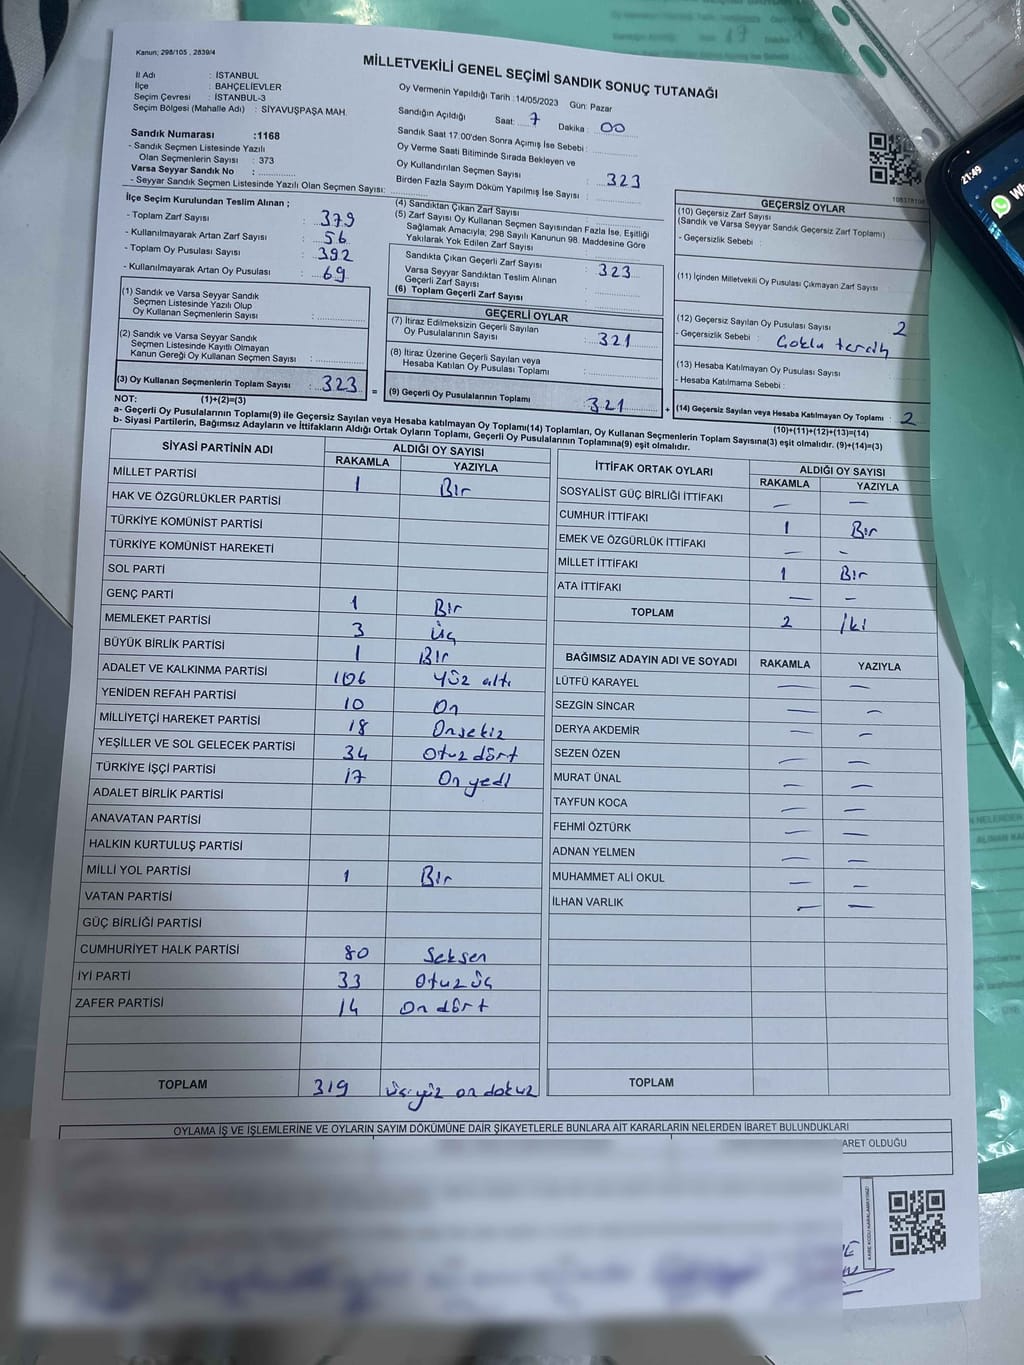 Kanun; 298/105 , 2839/4
MİLLETVEKİLİ GENEL SEÇİMİ SANDIK SONUÇ TUTANAĞI
İl Adı : İSTANBUL
İlçe : BAHÇELİEVLER
Seçim Çevresi : İSTANBUL-3
Seçim Bölgesi (Mahalle Adı) : SİYAVUŞPAŞA MAH.
Oy Vermenin Yapıldığı Tarih : 14/05/2023 Gün: Pazar
Sandığın Açıldığı Saat: 7 Dakika : 00
Sandık Saat 17.00'den Sonra Açımış İse Sebebi :
Oy Verme Saati Bitiminde Sırada Bekleyen ve
Oy Kullandırılan Seçmen Sayısı : 323
Birden Fazla Sayım Döküm Yapılmış İse Sayısı :
Sandık Numarası :1168
- Sandık Seçmen Listesinde Yazılı
Olan Seçmenlerin Sayısı : 373
Varsa Seyyar Sandık No :
- Seyyar Sandık Seçmen Listesinde Yazılı Olan Seçmen Sayısı:
İlçe Seçim Kurulundan Teslim Alınan ;
- Toplam Zarf Sayısı : 379
- Kullanılmayarak Artan Zarf Sayısı : 56
- Toplam Oy Pusulası Sayısı : 392
- Kullanılmayarak Artan Oy Pusulası : 69
(1) Sandık ve Varsa Seyyar Sandık
Seçmen Listesinde Yazılı Olup
Oy Kullanan Seçmenlerin Sayısı :
(2) Sandık ve Varsa Seyyar Sandık
Seçmen Listesinde Kayıtlı Olmayan
Kanun Gereği Oy Kullanan Seçmen Sayısı :
(3) Oy Kullanan Seçmenlerin Toplam Sayısı : 323 =
(4) Sandıktan Çıkan Zarf Sayısı
(5) Zarf Sayısı Oy Kullanan Seçmen Sayısından Fazla İse, Eşitliği
Sağlamak Amacıyla; 298 Sayılı Kanunun 98. Maddesine Göre
Yakılarak Yok Edilen Zarf Sayısı :
Sandıkta Çıkan Geçerli Zarf Sayısı : 323
Varsa Seyyar Sandıktan Teslim Alınan
Geçerli Zarf Sayısı
(6) Toplam Geçerli Zarf Sayısı
GEÇERLİ OYLAR
(7) İtiraz Edilmeksizin Geçerli Sayılan
Oy Pusulalarının Sayısı : 321
(8) İtiraz Üzerine Geçerli Sayılan veya
Hesaba Katılan Oy Pusulası Toplamı :
(9) Geçerli Oy Pusulalarının Toplamı : 321 +
GEÇERSİZ OYLAR
(10) Geçersiz Zarf Sayısı
(Sandık ve Varsa Seyyar Sandık Geçersiz Zarf Toplamı)
- Geçersizlik Sebebi :
(11) İçinden Milletvekili Oy Pusulası Çıkmayan Zarf Sayısı :
(12) Geçersiz Sayılan Oy Pusulası Sayısı 2
- Geçersizlik Sebebi : Çoklu tercih
(13) Hesaba Katılmayan Oy Pusulası Sayısı :
- Hesaba Katılmama Sebebi :
(14) Geçersiz Sayılan veya Hesaba Katılmayan Oy Toplamı : 2
NOT: (1)+(2)=(3)
(10)+(11)+(12)+(13)=(14)
a- Geçerli Oy Pusulalarının Toplamı(9) ile Geçersiz Sayılan veya Hesaba katılmayan Oy Toplamı(14) Toplamları, Oy Kullanan Seçmenlerin Toplam Sayısına(3) eşit olmalıdır. (9)+(14)=(3)
b- Siyasi Partilerin, Bağımsız Adayların ve İttifakların Aldığı Ortak Oyların Toplamı, Geçerli Oy Pusulalarının Toplamına(9) eşit olmalıdır.
SİYASİ PARTİNİN ADI ALDIĞI OY SAYISI
RAKAMLA YAZIYLA
MİLLET PARTİSİ 1 Bir
HAK VE ÖZGÜRLÜKLER PARTİSİ
TÜRKİYE KOMÜNİST PARTİSİ
TÜRKİYE KOMÜNİST HAREKETİ
SOL PARTİ
GENÇ PARTİ 1 Bir
MEMLEKET PARTİSİ 3 üç
BÜYÜK BİRLİK PARTİSİ 1 Bir
ADALET VE KALKINMA PARTİSİ 106 Yüz altı
YENİDEN REFAH PARTİSİ 10 On
MİLLİYETÇİ HAREKET PARTİSİ 18 Onsekiz
YEŞİLLER VE SOL GELECEK PARTİSİ 34 Otuz dört
TÜRKİYE İŞÇİ PARTİSİ 17 On yedi
ADALET BİRLİK PARTİSİ
ANAVATAN PARTİSİ
HALKIN KURTULUŞ PARTİSİ
MİLLİ YOL PARTİSİ 1 Bir
VATAN PARTİSİ
GÜÇ BİRLİĞİ PARTİSİ
CUMHURİYET HALK PARTİSİ 80 Seksen
İYİ PARTİ 33 Otuz üç
ZAFER PARTİSİ 14 On dört
TOPLAM 319 üçyüz on dokuz
İTTİFAK ORTAK OYLARI ALDIĞI OY SAYISI
RAKAMLA YAZIYLA
SOSYALİST GÜÇ BİRLİĞİ İTTİFAKI — —
CUMHUR İTTİFAKI 1 Bir
EMEK VE ÖZGÜRLÜK İTTİFAKI — -
MİLLET İTTİFAKI 1 Bir
ATA İTTİFAKI — -
TOPLAM 2 İki
BAĞIMSIZ ADAYIN ADI VE SOYADI RAKAMLA YAZIYLA
LÜTFÜ KARAYEL — —
SEZGİN SİNCAR — —
DERYA AKDEMİR — —
SEZEN ÖZEN — —
MURAT ÜNAL — —
TAYFUN KOCA — —
FEHMİ ÖZTÜRK — —
ADNAN YELMEN — —
MUHAMMET ALİ OKUL — —
İLHAN VARLIK — —
TOPLAM
OYLAMA İŞ VE İŞLEMLERİNE VE OYLARIN SAYIM DÖKÜMÜNE DAİR ŞİKAYETLERLE BUNLARA AİT KARARLARIN NELERDEN İBARET BULUNDUKLARI
ARET OLDUĞU
21:49